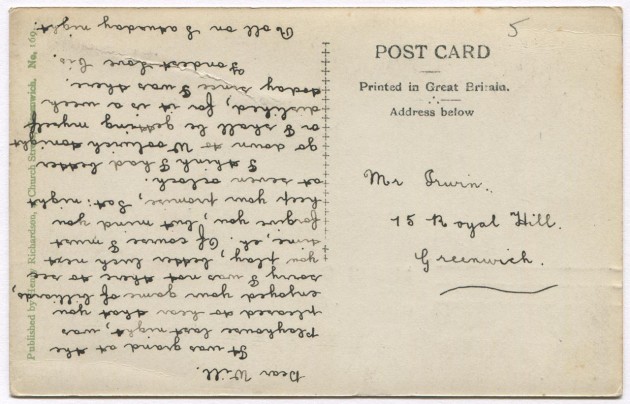 POST CARD
Printed in Great Britain.
Address below
5
Mr Irwin.
15 Royal Hill.
Greenwich.
Dear Will.
It was grand at the
Playhouse last night, was
pleased to hear that you
enjoyed your game of billiards,
sorry I was not there to see
you play, better luck next
time, eh. Of course I must
forgive you, but mind you
keep your promise, Sat: night
at seven oclock.
I think I had better
go down to Woolwich tonight
or I shall be getting myself
disliked, for it is a week
today since I was there.
Fondest love Cis.
Roll on Saturday night
Published by Henry Richardson, Church Street, Greenwich. No. 169.